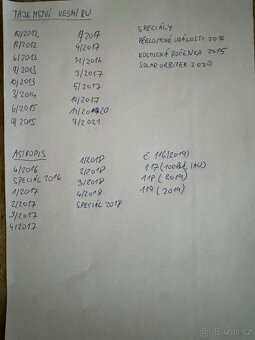 TAJEMSTVÍ VESMÍRU
10/2012
12/2012
6/2013
9/2013
10/2013
3/2014
6/2015
9/2015
1/2017
4/2017
12/2016
3/2017
5/2017
10/2017
11/2020
9/2021
SPECIÁLY
PŘELOMOVÉ UDÁLOSTI 2016
KOSMICKÁ ROČENKA 2015
SOLAR ORBITER 2020
ASTROPIS
4/2016
SPECIÁL 2016
1/2017
2/2017
3/2017
4/2017
1/2018
2/2018
3/2018
4/2018
SPECIÁL 2018
Č 116/2019)
117 (100 let IAU)
118 (2019)
119 (2019)
Bazos.cz